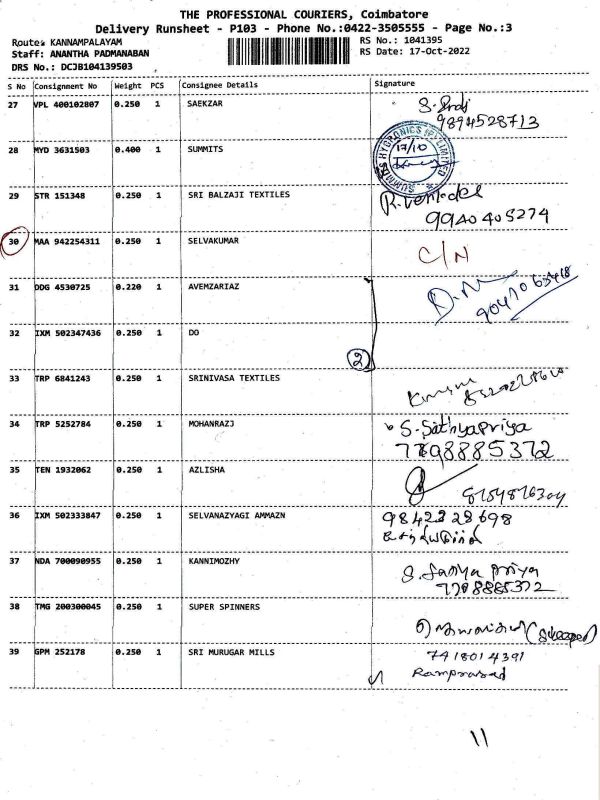 THE PROFESSIONAL COURIERS, Coimbatore
Delivery Runsheet - P103 - Phone No.:0422-3505555 - Page No.:3
Route: KANNAMPALAYAM
RS No.: 1041395
Staff: ANANTHA PADMANABAN
RS Date: 17-Oct-2022
DRS No.: DCJB104139503
S No Consignment No Weight PCS Consignee Details Signature
27 VPL 400102807 0.250 1 SAEKZAR
9894528713
28 MYD 3631503 0.400 1 SUMMITS
SUMMITS HYGRONICS (P) LIMITED
17/10
29 STR 151348 0.250 1 SRI BALZAJI TEXTILES
9940405274
30 MAA 942254311 0.250 1 SELVAKUMAR C/N
31 DDG 4530725 0.220 1 AVEMZARIAZ
32 IXM 502347436 0.250 1 DO
2
33 TRP 6841243 0.250 1 SRINIVASA TEXTILES
34 TRP 5252784 0.250 1 MOHANRAZJ S. Sathyapriya
7708885372
35 TEN 1932062 0.250 1 AZLISHA
36 IXM 502333847 0.250 1 SELVANAZYAGI AMMAZN 9842328698
37 NDA 700090955 0.250 1 KANNIMOZHY
7708885372
38 TMG 200300045 0.250 1 SUPER SPINNERS
39 GPM 252178 0.250 1 SRI MURUGAR MILLS 7418014391
Ramprasad
11